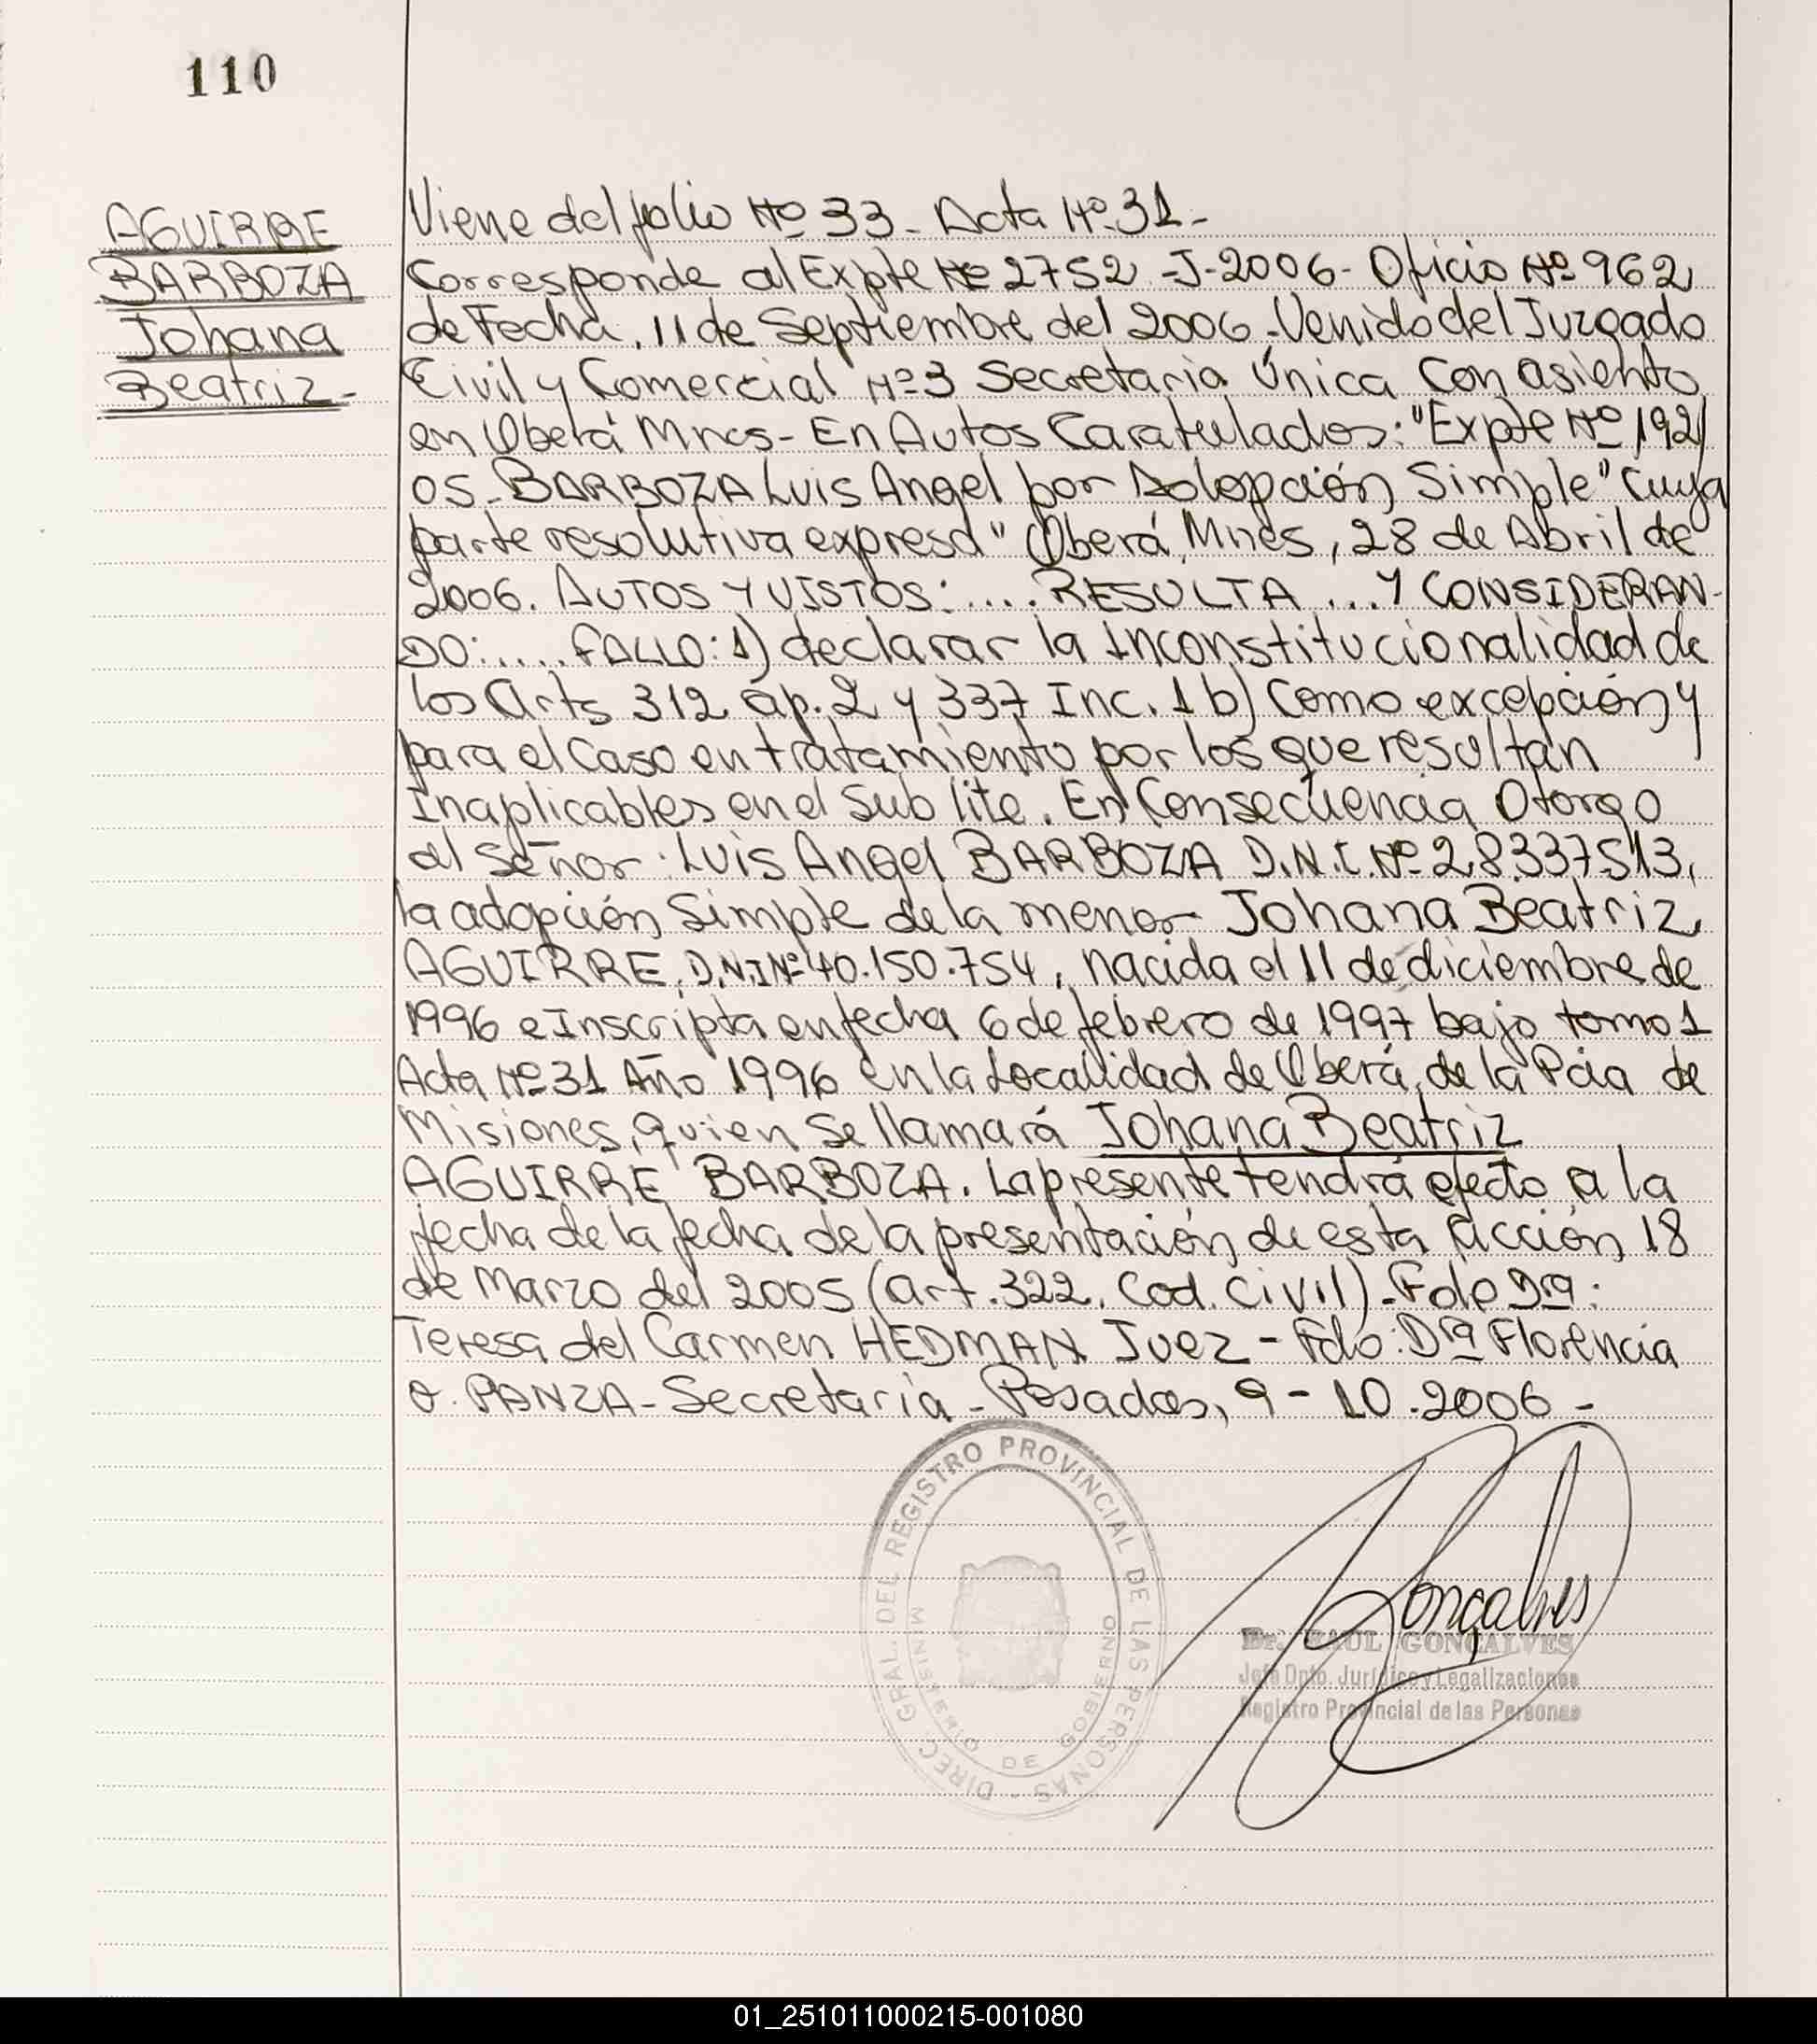 110
AGUIRRE
BARBOZA
Johana
Beatriz-
Viene del folio Nº 33 - Acta Nº 31 -
Corresponde al Expte Nº 2752 -J-2006- Oficio Nº 962
de Fecha, 11 de Septiembre del 2006.-Venido del Juzgado
Civil y Comercial Nº 3 Secretaria Única Con asiento
en Oberá Mnes- En Autos Caratulados: "Expte Nº 192/
05-BARBOZA Luis Angel por Adopción Simple" Cuya
parte resolutiva expresa" Oberá, Mnes, 28 de Abril de
2006. AUTOS Y VISTOS:.... RESULTA ...Y CONSIDERAN-
DO:.... FALLO: 1) declarar la Inconstitucionalidad de
los Arts 312 áp. 2 y 337 Inc. 1 b) Como excepción y
para el Caso en tratamiento por los que resultan
Inaplicables en el Sub lite. En Consecuencia Otorgo
al Señor: Luis Angel BARBOZA D.N.I. Nº 28.337513,
la adopción Simple de la menor Johana Beatriz
AGUIRRE, D.N.I Nº 40.150.754, nacida el 11 de diciembre de
1996 e Inscripta en fecha 6 de febrero de 1997 bajo tomo 1
Acta Nº 31 Año 1996 en la Localidad de Oberá, de la Pcia de
Misiones, quien Se llamará Johana Beatriz
AGUIRRE BARBOZA. La presente tendrá efecto a la
fecha de la fecha de la presentación de esta acción 18
de Marzo del 2005 (art. 322. Cod. Civil)-Fdo Dra:
Teresa del Carmen HEDMAN Juez - Fdo: Dra Florencia
O. PANZA-Secretaria - Posadas, 9 - 10.2006 -
DIREC. GRAL. DEL REGISTRO PROVINCIAL DE LAS PERSONAS -
MINISTERIO DE GOBIERNO
Gonçalves
Dr. RAUL GONÇALVES
Jefe Dpto. Jurídico y Legalizaciones
Registro Provincial de las Personas
01_251011000215-001080